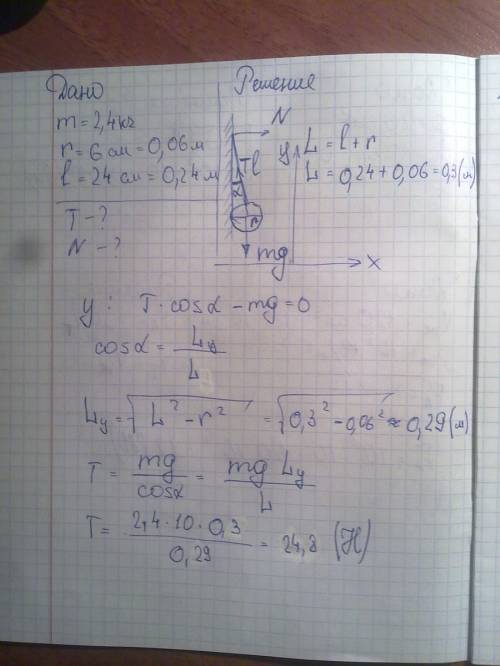 Дано
Решение
m = 2,4 кг
r = 6 см = 0,06 м
l = 24 см = 0,24 м
T - ?
N - ?
N
y
T
l
α
r
mg
x
L = l + r
L = 0,24 + 0,06 = 0,3 (м)
y : T · cosα - mg = 0
cosα = Ly / L
Ly = √(L² - r²) = √(0,3² - 0,06²) ≈ 0,29 (м)
T = mg / cosα = mg Ly / L
T = 2,4 · 10 · 0,3 / 0,29 = 24,8 (Н)